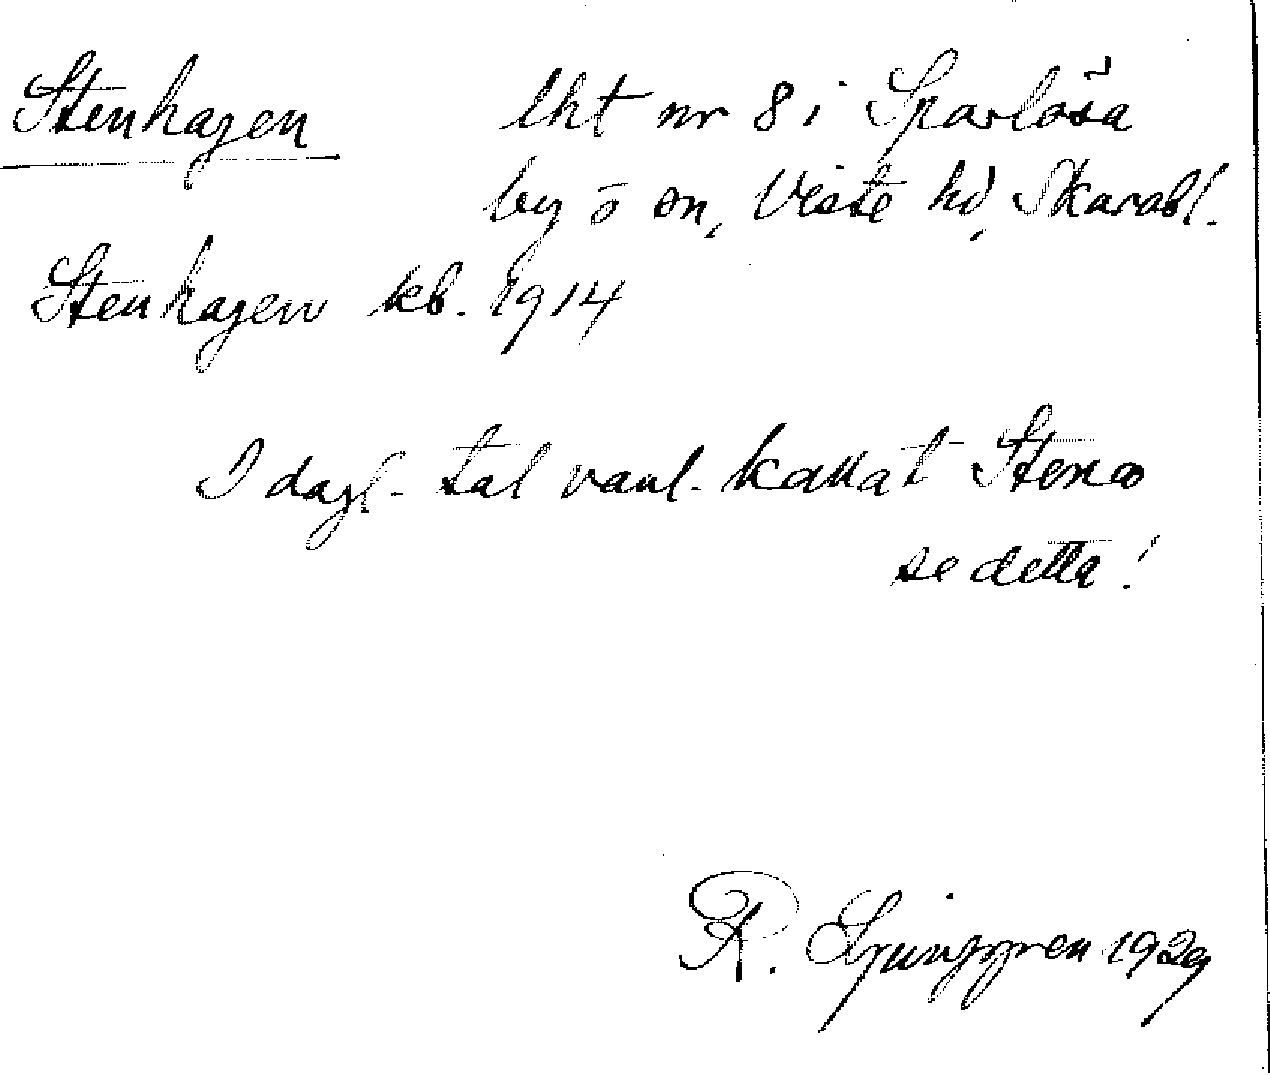 Stenhagen lht nr 8 i Sparlösa
by o sn, Viste hd, Skarabl.
Stenhagen kb. 1914
I dagl. tal vanl. kallat
se detta!
R. Ljunggren 1929